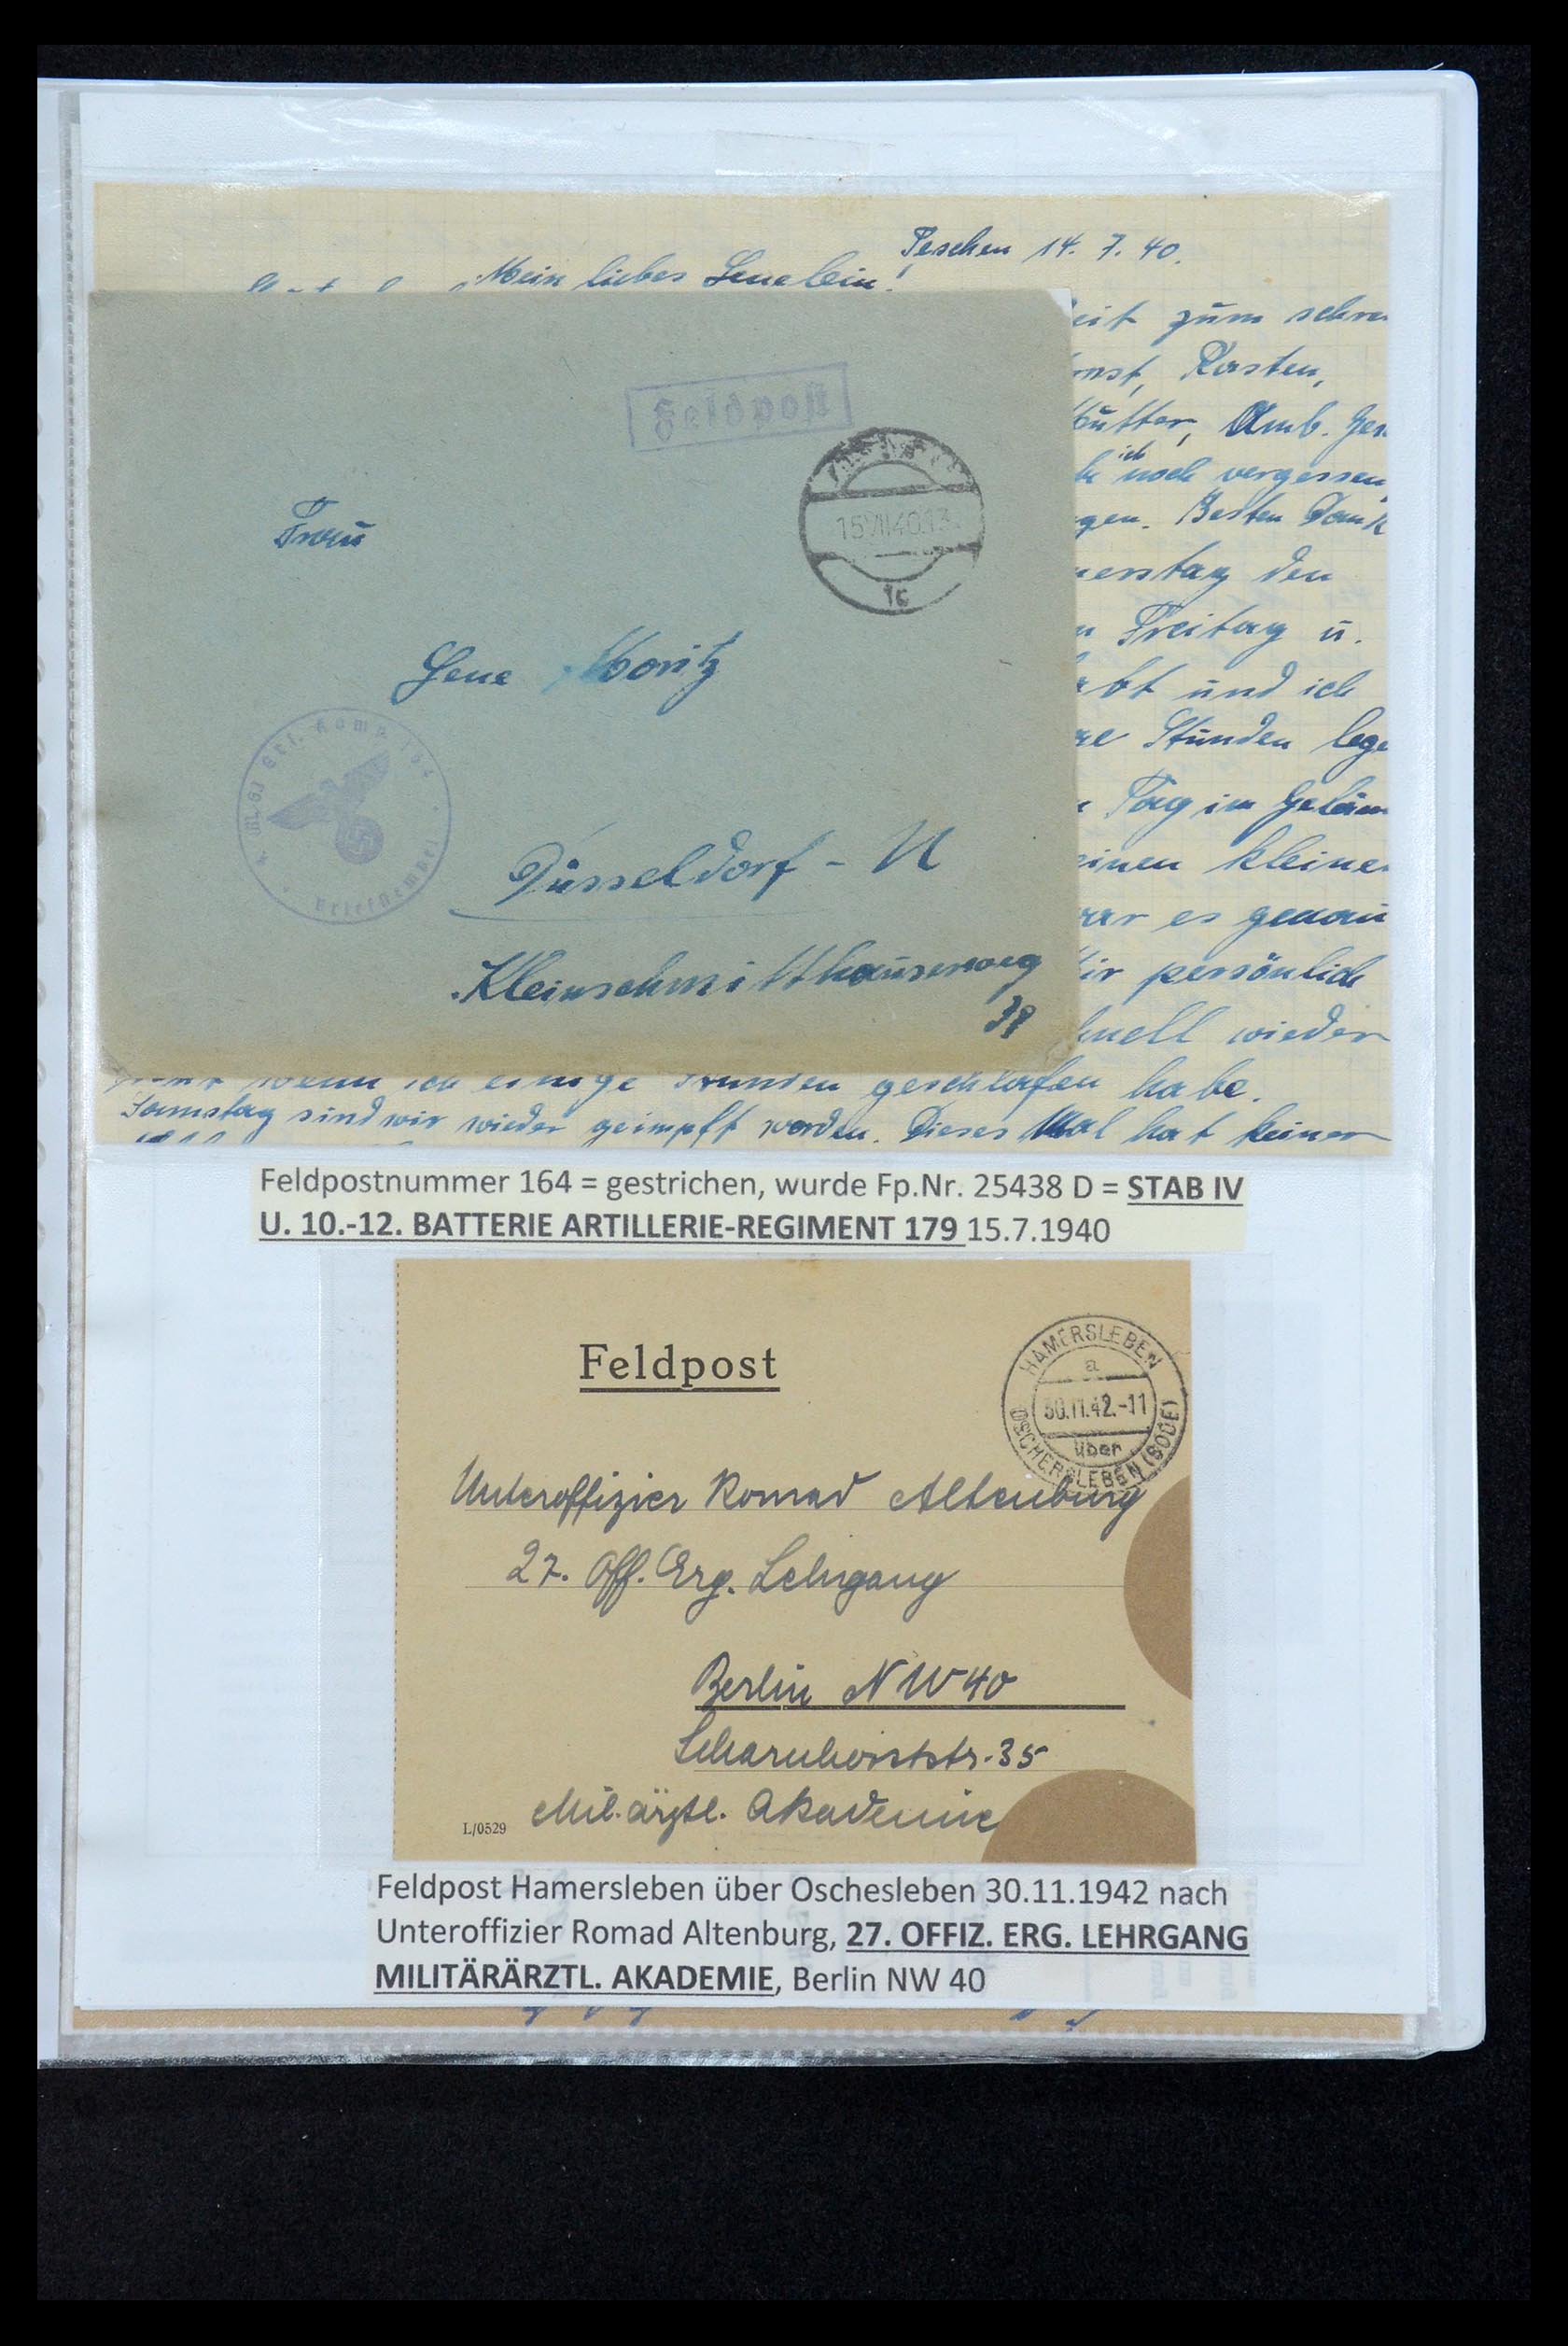 Teschen 14. 7. 40.
Mein liebes Lenelein!
eit zum schrei
rnst, Kasten,
utter, Amb. Ger.
ich
be noch vergessen
gen. Besten Dank
nerstag den
n Freitag u.
abt und ich
re Stunden lege
n Tag im Gelän
einen kleinen
war es genau
ir persönlich
hnell wieder
wenn ich einige Stunden geschlafen habe.
Samstag sind wir wieder geimpft worden. Dieses Mal hat keiner
Feldpost
15.VII.40.13
1c
Frau
Lene Moritz
Briefstempel
Düsseldorf - U
Kleinschmitthauserweg
38
Feldpostnummer 164 = gestrichen, wurde Fp.Nr. 25438 D = STAB IV
U. 10.-12. BATTERIE ARTILLERIE-REGIMENT 179 15.7.1940
Feldpost
HAMERSLEBEN
a
30.11.42.-11
über
OSCHERSLEBEN (BODE)
Unteroffizier Romad Altenburg
27. Off. Erg. Lehrgang
Berlin NW 40
Scharnhorststr. 35
Mil. ärztl. Akademie
L/0529
Feldpost Hamersleben über Oschesleben 30.11.1942 nach
Unteroffizier Romad Altenburg, 27. OFFIZ. ERG. LEHRGANG
MILITÄRÄRZTL. AKADEMIE, Berlin NW 40